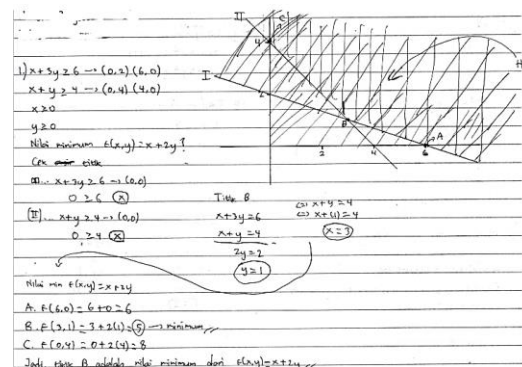 1) x + 3y ≥ 6 → (0,2) (6,0)
x + y ≥ 4 → (0,4) (4,0)
x ≥ 0
y ≥ 0
Nilai minimum f(x,y) = x + 2y ?
Cek titik
x + 3y ≥ 6 → (0,0)
0 ≥ 6 (x)
(II) ... x + y ≥ 4 → (0,0)
0 ≥ 4 (x)
Titik B
x + 3y = 6
x + y = 4
2y = 2
y = 1
⇔ x + y = 4
⇔ x + (1) = 4
x = 3
I
II
C
4
2
B
A
2
4
6
H
Nilai min f(x,y) = x + 2y
A. f(6,0) = 6 + 0 = 6
B. f(3,1) = 3 + 2(1) = 5 → minimum
C. f(0,4) = 0 + 2(4) = 8
Jadi, titik B adalah nilai minimum dari f(x,y) = x + 2y